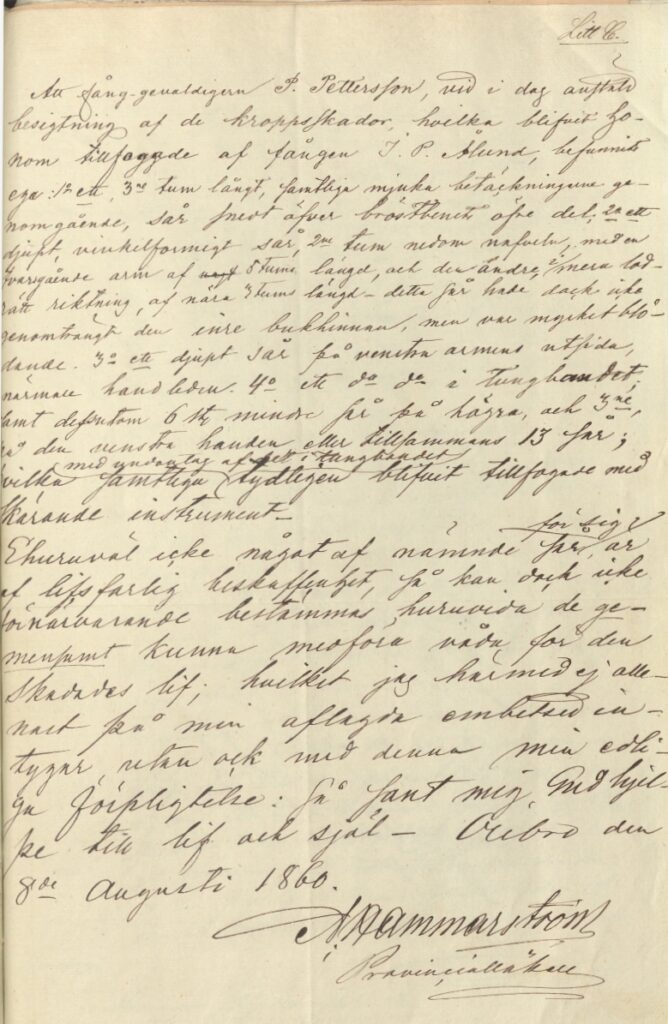 Litt C.
Att fång-gevaldigern P. Pettersson, vid i dag anstäld
besigtning af de kroppsskador, hvilka blifvit ho-
nom tillfogade af fången J. P. Ålund, befunnits
ega: 1º ett, 3ne tum långt, samtliga mjuka betäckningarne ge-
nomgående, sår snedt öfver bröstbenets öfre del; 2º ett
djupt, vinkelformigt sår, 2ne tum nedom nafveln, med en
tvärgående arm af 8 tums längd, och den andre, i mera lod-
rätt riktning, af nära 3 tums längd – detta sår hade dock icke
genomträngt den inre bukhinnan, men var mycket blö-
dande. 3º ett djupt sår på venstra armens utsida,
närmare handleden. 4º ett do do i tungbandet;
samt dessutom 6 st. mindre sår på högra, och 3ne,
på den venstra handen eller tillsammans 13 sår;
med undantag af sett i tungbandet
hvilka samtliga tydligen blifvit tillfogade med
skärande instrument –
för sig
Ehuruväl icke något af nämnde sår, är
af lifsfarlig beskaffenhet, så kan dock icke
förnärvarande bestämmas, huruvida de ge-
mensamt kunna medföra våda för den
skadades lif; hvilket jag härmed ej alle-
nast på min aflagda embetsed in-
tygar, utan ock med denna min edli-
ga förpligtelse: Så sant mig Gud hjel-
pe till lif och själ – Örebro den
8de Augusti 1860.
A. Hammarström
Provinciälläkare